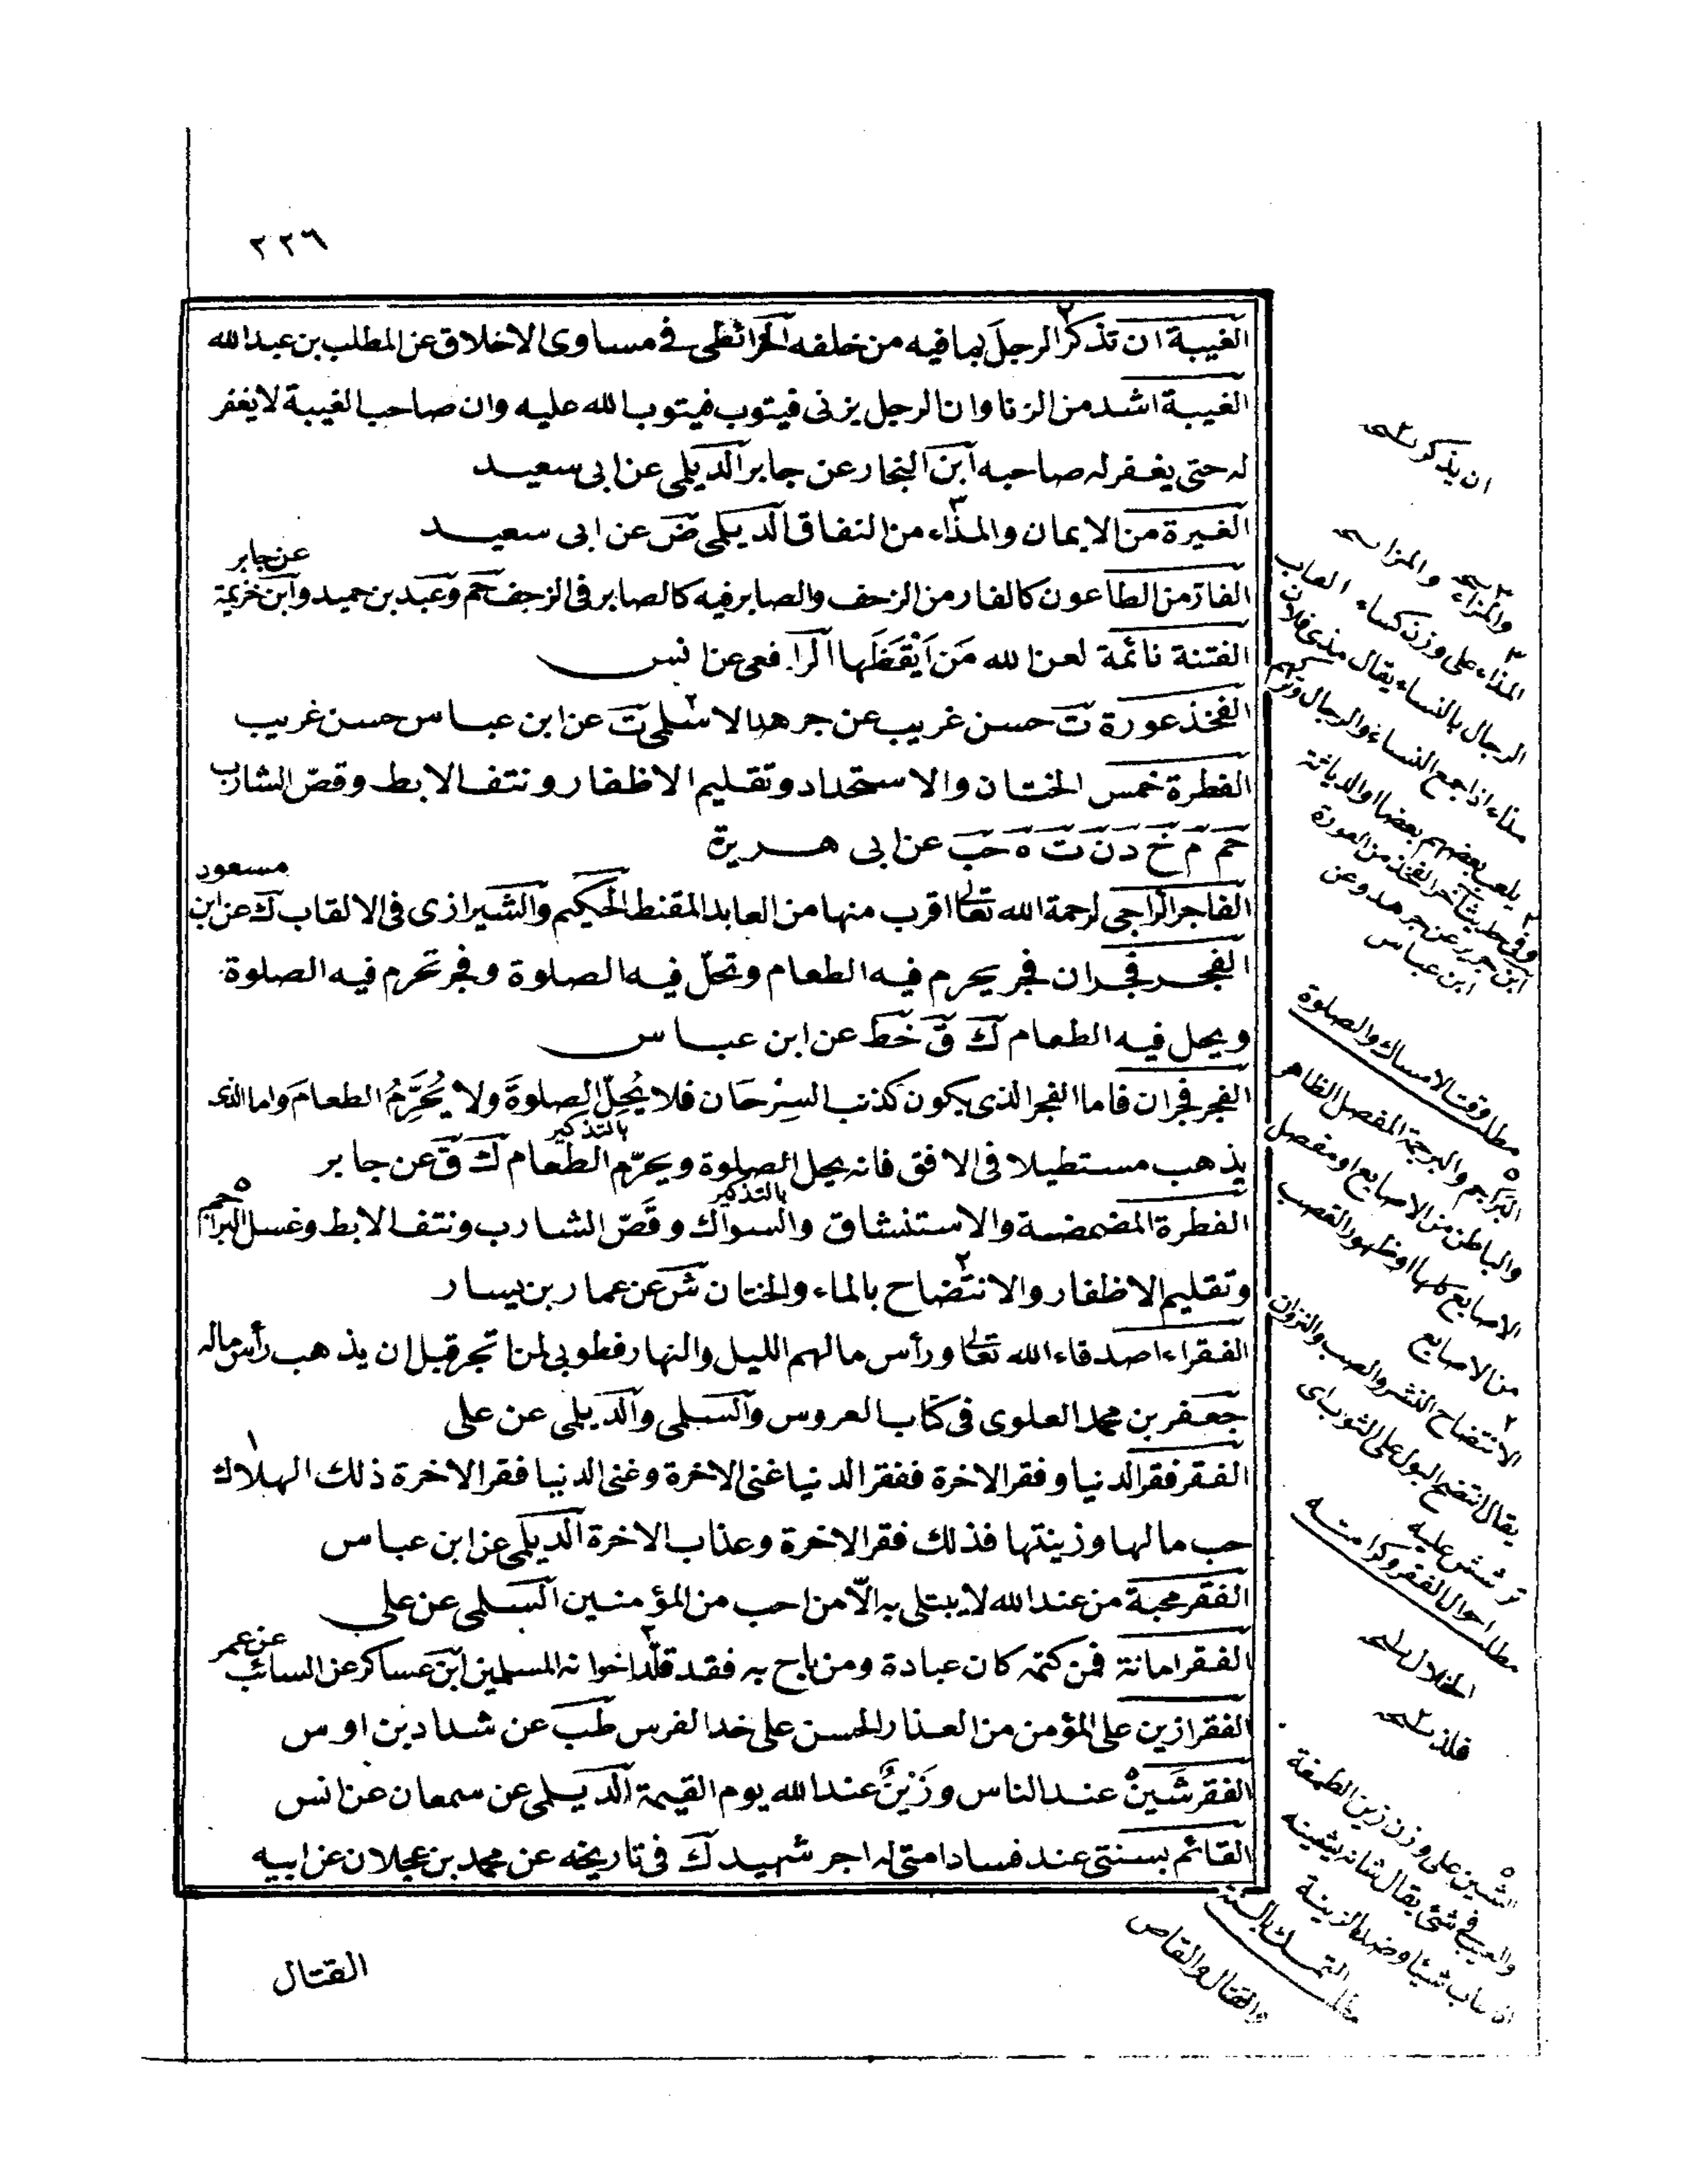 ٢٢٦
الغيبة ان تذكر الرجل بما فيه من خلفه الخرائطى فى مساوى الاخلاق عن المطلب بن عبد الله
الغيبة اشد من الزنا وان الرجل يزنى فيتوب فيتوب الله عليه وان صاحب الغيبة لا يغفر
له حتى يغفر له صاحبه ابن النجار عن جابر الديلمى عن ابى سعيد
الغيرة من الايمان والمذاء من النفاق الديلمى ض عن ابى سعيد
عن جابر
الفار من الطاعون كالفار من الزحف والصابر فيه كالصابر فى الزحف حم وعبد بن حميد وابن خزيمة
الفتنة نائمة لعن الله مَن اَيْقَظَها الرافعى عن انس
الفخذ عورة ت حسن غريب عن جرهد الاسلمى ت عن ابن عباس حسن غريب
الفطرة خمس الختان والاستحداد وتقليم الاظفار ونتف الابط وقصّ الشارب
حم م خ د ن ت ه حب عن ابى هريرة
مسعود
الفاجر الراجى لرحمة الله تعالى اقرب منها من العابد المقنط الحكيم والشيرازى فى الالقاب ك عن ابن
الفجر فجران فجر يحرم فيه الطعام وتحلّ فيه الصلوة وفجر تحرم فيه الصلوة
ويحل فيه الطعام ك ق خط عن ابن عباس
الفجر فجران فاما الفجر الذى يكون كذنب السِرْحَان فلا يُحِلّ الصلوةَ ولا يُحَرِّمُ الطعامَ واما الذى
بالتذكير
يذهب مستطيلا فى الافق فانه يحل الصلوة ويحرّم الطعام ك ق عن جابر
بالتذكير
الفطرة المضمضة والاستنشاق والسواك وقَصّ الشارب ونتف الابط وغسل البراجم
وتقليم الاظفار والانتضاح بالماء والختان ش عن عمار بن يسار
الفقراء اصدقاء الله تعالى ورأس مالهم الليل والنهار فطوبى لمن اتجر قبل ان يذهب رأس ماله
جعفر بن محمد العلوى فى كتاب العروس والسلمى والديلمى عن على
الفقر فقر الدنيا وفقر الاخرة ففقر الدنيا غنى الاخرة وغنى الدنيا فقر الاخرة ذلك الهلاك
حب مالها وزينتها فذلك فقر الاخرة وعذاب الاخرة الديلمى عن ابن عباس
الفقر محبة من عند الله لا يبتلى به الّا من احب من المؤمنين السلمى عن على
عن عمر
الفقر امانة فمن كتمه كان عبادة ومن باح به فقد قلّد اخوانه المسلمين ابن عساكر عن السائب
الفقر ازين على المؤمن من العذار الحسن على خد الفرس طب عن شداد بن اوس
الفقر شَينٌ عند الناس وزَيْنٌ عند الله يوم القيمة الديلمى عن سمعان عن انس
القائم بسنتى عند فساد امتى له اجر شهيد ك فى تاريخه عن محمد بن عجلان عن ابيه
القتال
ان يذكر
والمزاء والمزا
المذاء على وزن كساء العاب
الرجال بالنساء يقال مذى فلان
مذاء اذا جمع النساء والرجال وتركهم
يلعب بعضهم بعضا والدياثة
وفى حديث آخر الفخذ من العورة
ابن جرير عن جرهد وعن
ابن عباس
مطلب وقت الامساك والصلوة
البراجم والبرجمة المفصل الظاهر
والباطن من الاصابع او مفصل
الاصابع كلها او ظهور القصب
من الاصابع
الانتضاح النشر والصب والنزوان
يقال انتضح البول على الثوب اى
ترشش عليه
مطلب احوال الفقر وكرامته
الشين على وزن زين
والعيب فى شئ يقال شانه يشينه
شيئا وضده الزينة
التمسك بالسنة
والقتال والقاص